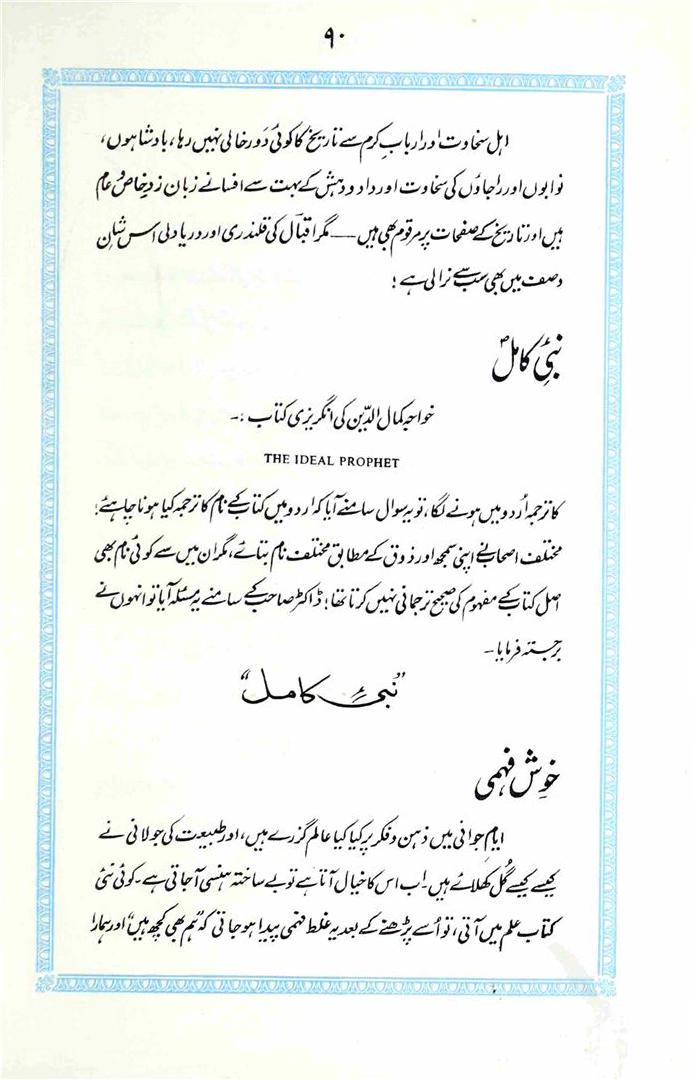 ۹۰
اہل سخاوت اور اربابِ کرم سے تاریخ کا کوئی دَور خالی نہیں رہا، بادشاہوں،
نوابوں اور راجاؤں کی سخاوت اور داد و دہش کے بہت سے افسانے زبان زدِ خاص و عام
ہیں اور تاریخ کے صفحات پر مرقوم بھی ہیں — مگر اقبالؔ کی قلندری اور دریا دلی اس شانِ
وصف میں بھی سب سے نرالی ہے!
نبیٔ کاملؐ
خواجہ کمال الدّین کی انگریزی کتاب :۔
THE IDEAL PROPHET
کا ترجمہ اُردو میں ہونے لگا، تو یہ سوال سامنے آیا کہ اردو میں کتاب کے نام کا ترجمہ کیا ہونا چاہئے!
مختلف اصحاب نے اپنی سمجھ اور ذوق کے مطابق مختلف نام بتائے، مگر ان میں سے کوئی نام بھی
اصل کتاب کے مفہوم کی صحیح ترجمانی نہیں کرتا تھا! ڈاکٹر صاحب کے سامنے یہ مسئلہ آیا تو انہوں نے
برجستہ فرمایا۔
"نبیٔ کامل"
خوش فہمی
ایامِ جوانی میں ذہن و فکر پر کیا کیا عالم گزرے ہیں، اور طبیعت کی جولانی نے
کیسے کیسے گُل کھلائے ہیں۔ اب اس کا خیال آتا ہے تو بے ساختہ ہنسی آجاتی ہے۔ کوئی نئی
کتاب علم میں آتی، تو اُسے پڑھنے کے بعد یہ غلط فہمی پیدا ہو جاتی کہ "ہم بھی کچھ ہیں" اور ہمارا